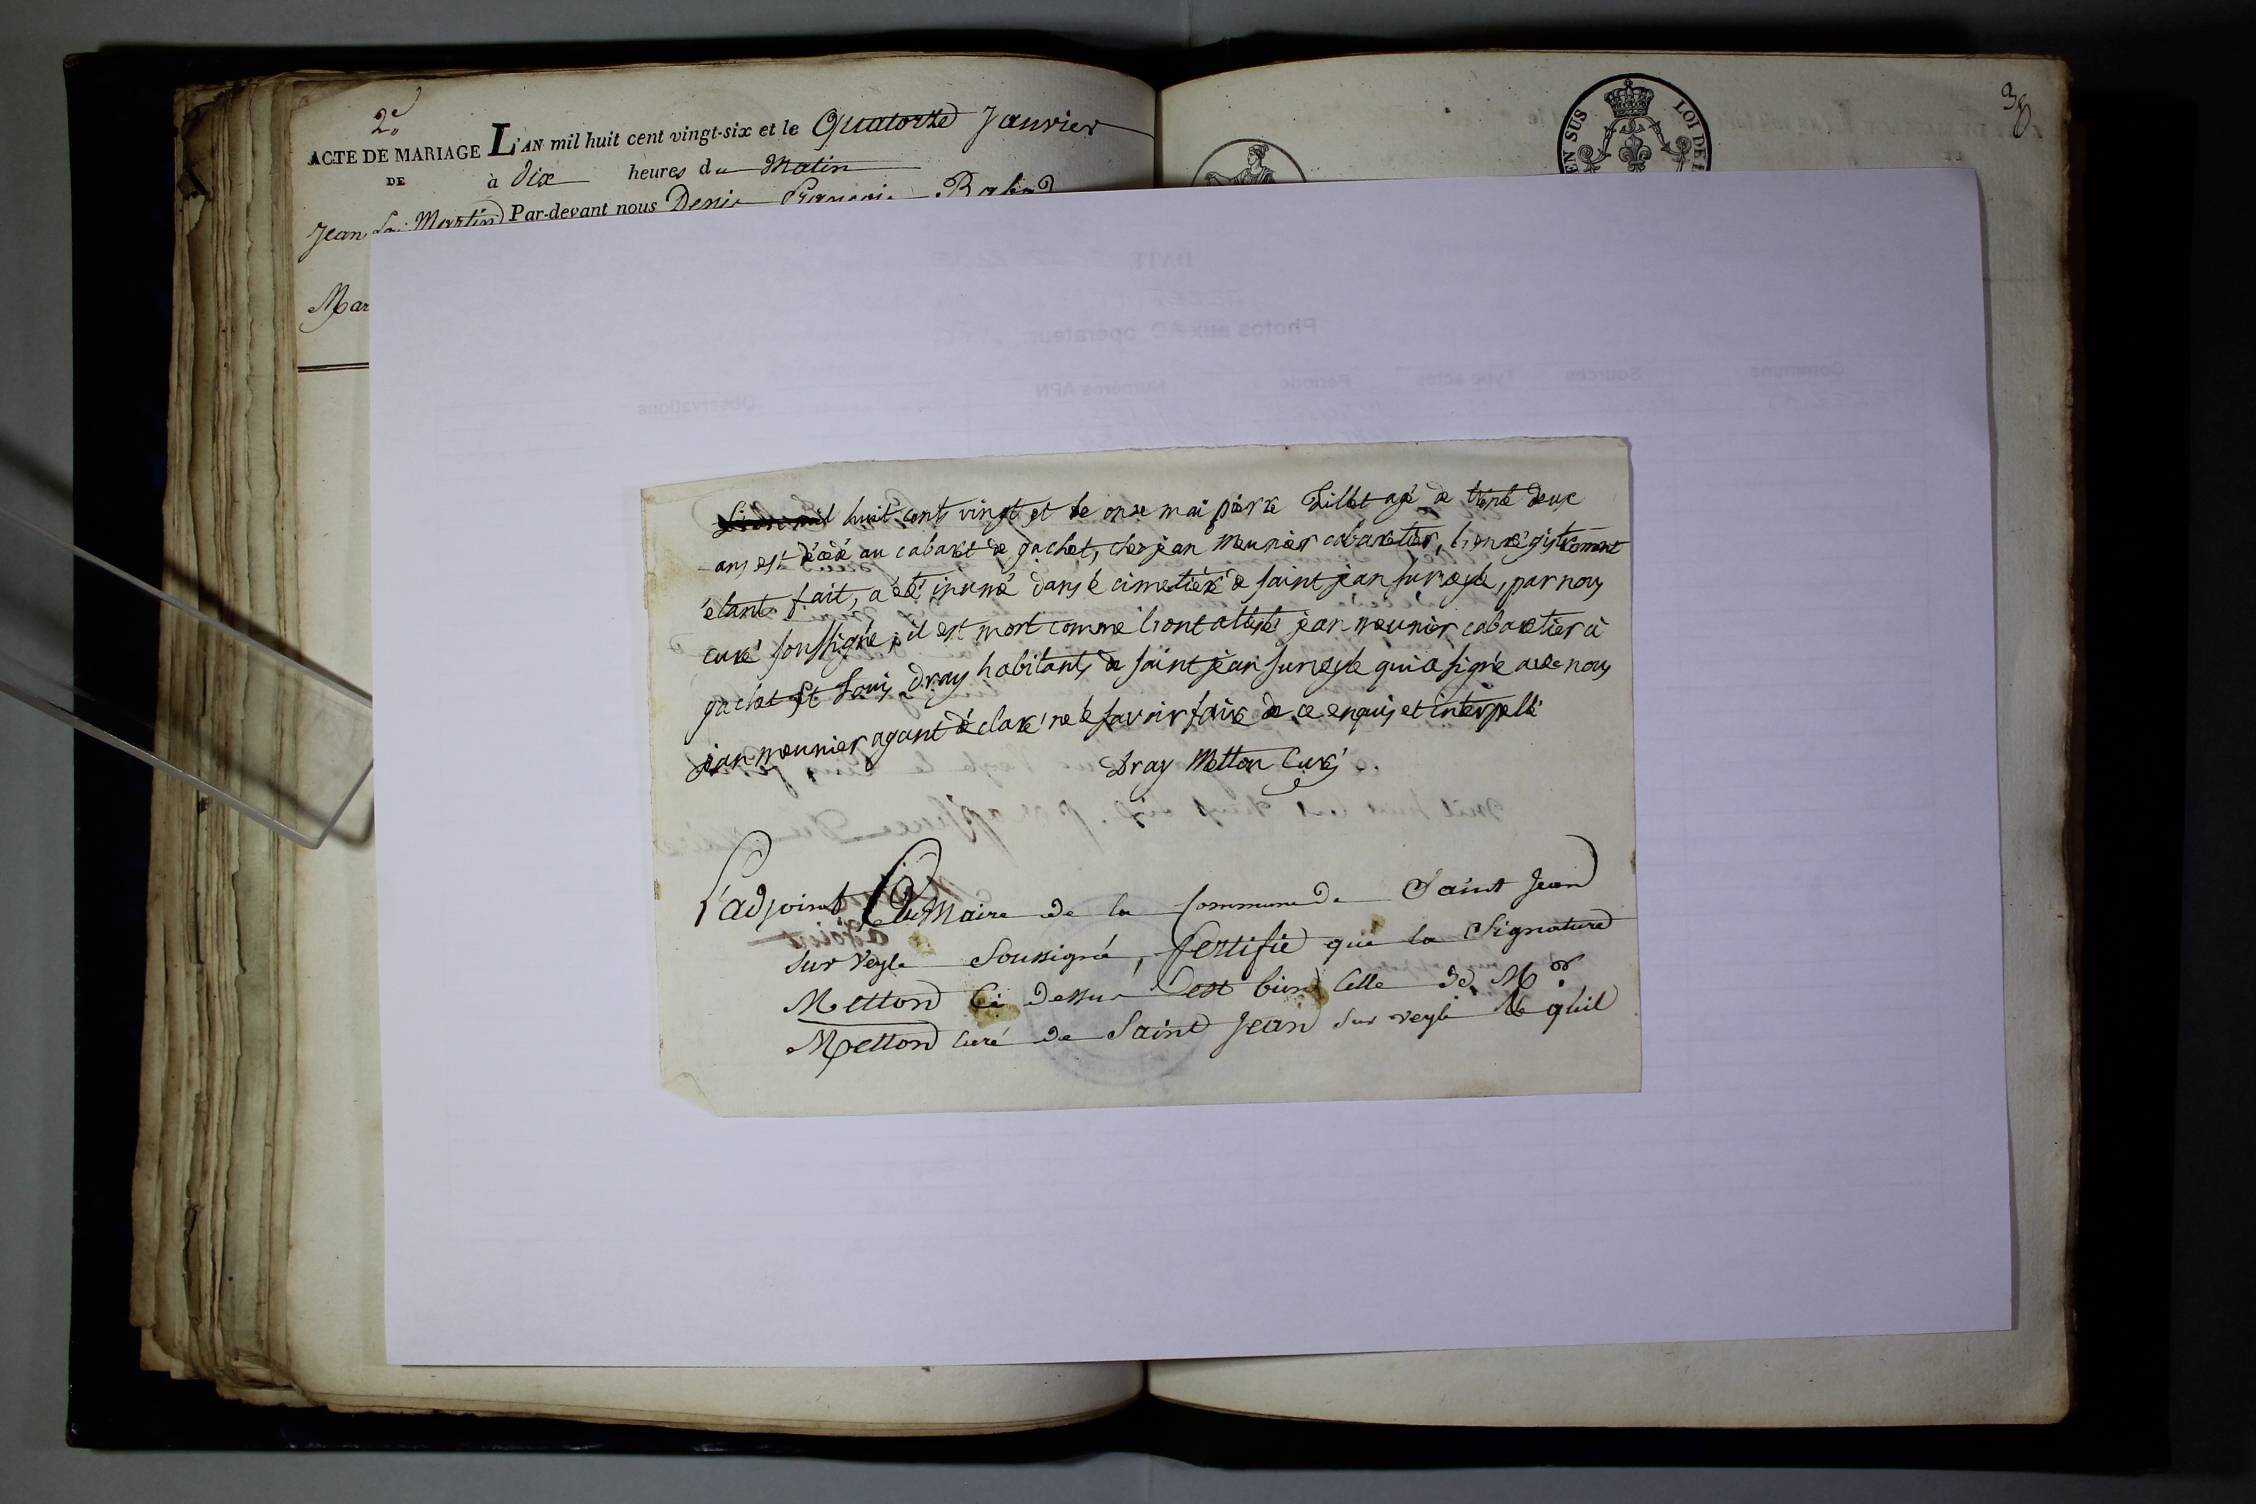 2e
ACTE DE MARIAGE
DE
Jean Martin
Mar
L'AN mil huit cent vingt-six et le Quatorze Janvier
à dix heures du Matin
Par-devant nous Denis François Rabad
38
EN SUS
LOI DE
DATE
Photos aux AD opérateur
Commune Sources Type actes Période Numéros APN Observations
mil huit cents vingt et le onze mai pierre Lillet agé de trente deux
ans est décédé au cabaret de gachet, chez jean meunier cabaretier, l'enregistrement
étant fait, a été inumé dans le cimetiére de saint jean sur veyle, par nous
curé soussigné, il est mort comme l'ont attesté jean meunier cabaretier à
gachet et Louis Dray habitants de saint jean sur veyle qui a signé avec nous
jean meunier ayant déclaré ne le savoir faire de ce enquis et interpellé
Dray Metton Curé
L'adjoint Du Maire de la Commune de Saint Jean
sur Veyle Soussigné, Certifie que la Signature
Metton Ci dessus est bien Celle de Mr
Metton Curé de Saint Jean sur veyle & qu'il